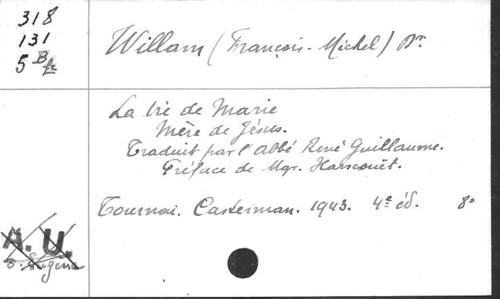 318
131
5 B
Willam (François-Michel) Dr.
La vie de Marie
Mère de Jésus.
Traduit par l'abbé René Guillaume.
Préface de Mgr. Harscouët.
Tournai. Casterman. 1943. 4e éd. 8°
A. U.